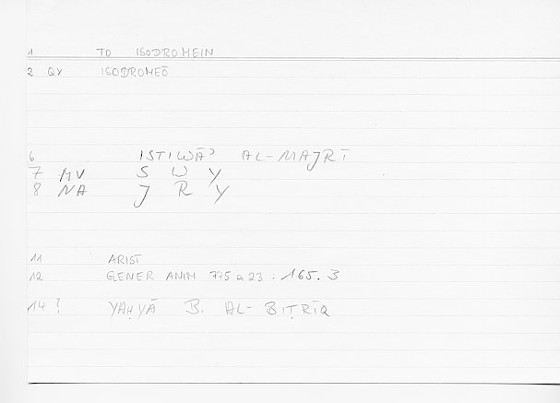 1 TO ISODROMEIN
2 QY ISODROMEŌ
6 ISTIWĀʾ AL-MAJRĪ
7 MV S W Y
8 NA J R Y
11 ARIST
12 GENER ANIM 775 a 23 : 165.3
14 ? YAḤYĀ B. AL-BIṬRĪQ